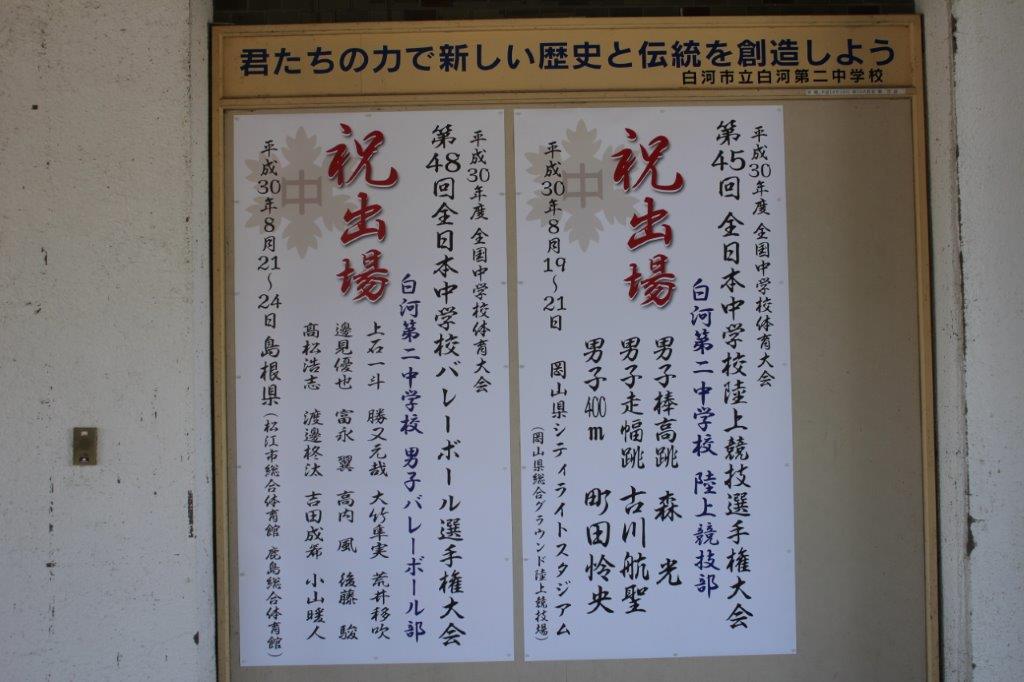 君たちの力で新しい歴史と伝統を創造しよう
白河市立白河第二中学校
平成30年度 全国中学校体育大会
第45回 全日本中学校陸上競技選手権大会
白河第二中学校 陸上競技部
祝出場
男子棒高跳 森 光
男子走幅跳 古川航聖
男子400m 町田怜央
平成30年8月19〜21日 岡山県シティライトスタジアム
(岡山県総合グラウンド陸上競技場)
中
平成30年度 全国中学校体育大会
第48回全日本中学校バレーボール選手権大会
白河第二中学校 男子バレーボール部
祝出場
上石一斗 勝又元哉 大竹隼実 荒井移吹
邊見優也 富永 翼 高内 風 後藤 駿
髙松浩志 渡邊柊汰 吉田成 小山暖人
平成30年8月21〜24日 島根県(松江市総合体育館 鹿島総合体育館)
中